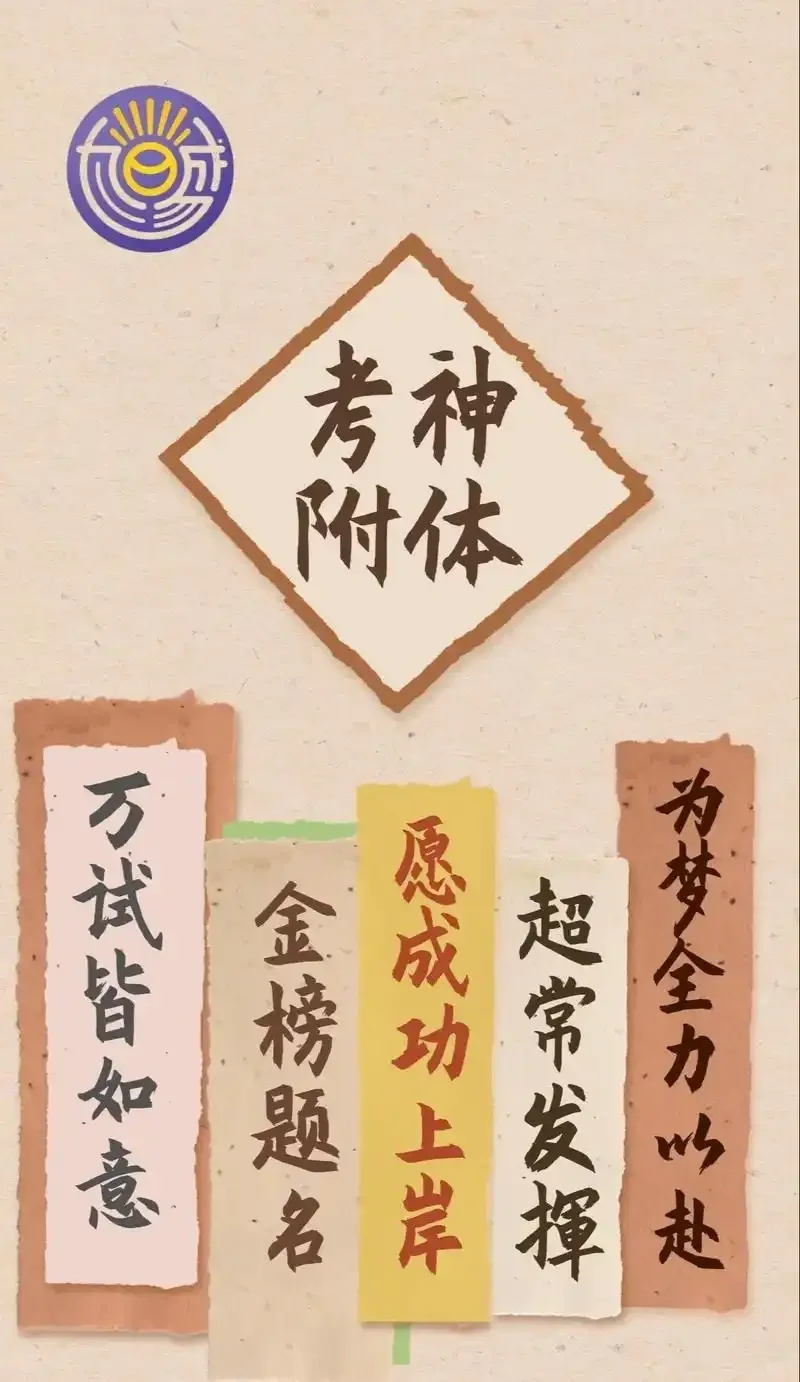 考神
附体
万试皆如意
金榜题名
愿成功上岸
超常发揮
为梦全力以赴